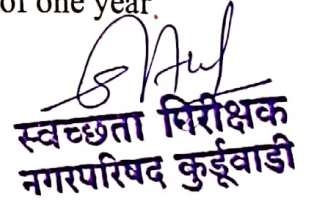 of one year.
स्वच्छता निरीक्षक
नगरपरिषद कुर्डूवाडी